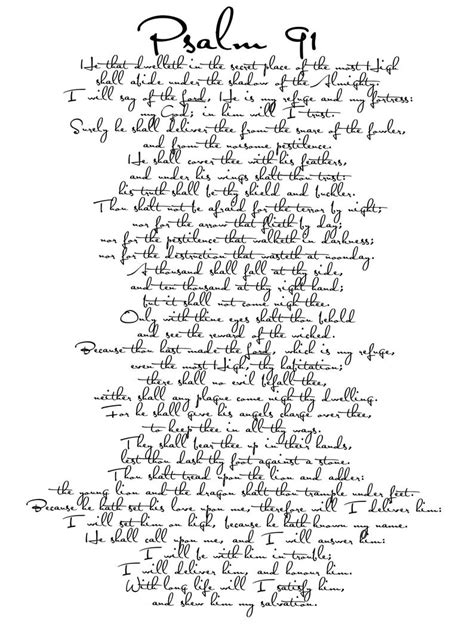 Psalm 91
He that dwelleth in the secret place of the most High
shall abide under the shadow of the Almighty.
I will say of the Lord, He is my refuge and my fortress:
my God; in him will I trust.
Surely he shall deliver thee from the snare of the fowler,
and from the noisome pestilence.
He shall cover thee with his feathers,
and under his wings shalt thou trust:
his truth shall be thy shield and buckler.
Thou shalt not be afraid for the terror by night;
nor for the arrow that flieth by day;
nor for the pestilence that walketh in darkness;
nor for the destruction that wasteth at noonday.
A thousand shall fall at thy side,
and ten thousand at thy right hand;
but it shall not come nigh thee.
Only with thine eyes shalt thou behold
and see the reward of the wicked.
Because thou hast made the Lord, which is my refuge,
even the most High, thy habitation;
there shall no evil befall thee,
neither shall any plague come nigh thy dwelling.
For he shall give his angels charge over thee,
to keep thee in all thy ways.
They shall bear thee up in their hands,
lest thou dash thy foot against a stone.
Thou shalt tread upon the lion and adder:
the young lion and the dragon shalt thou trample under feet.
Because he hath set his love upon me, therefore will I deliver him:
I will set him on high, because he hath known my name.
He shall call upon me, and I will answer him:
I will be with him in trouble;
I will deliver him, and honour him.
With long life will I satisfy him,
and shew him my salvation.